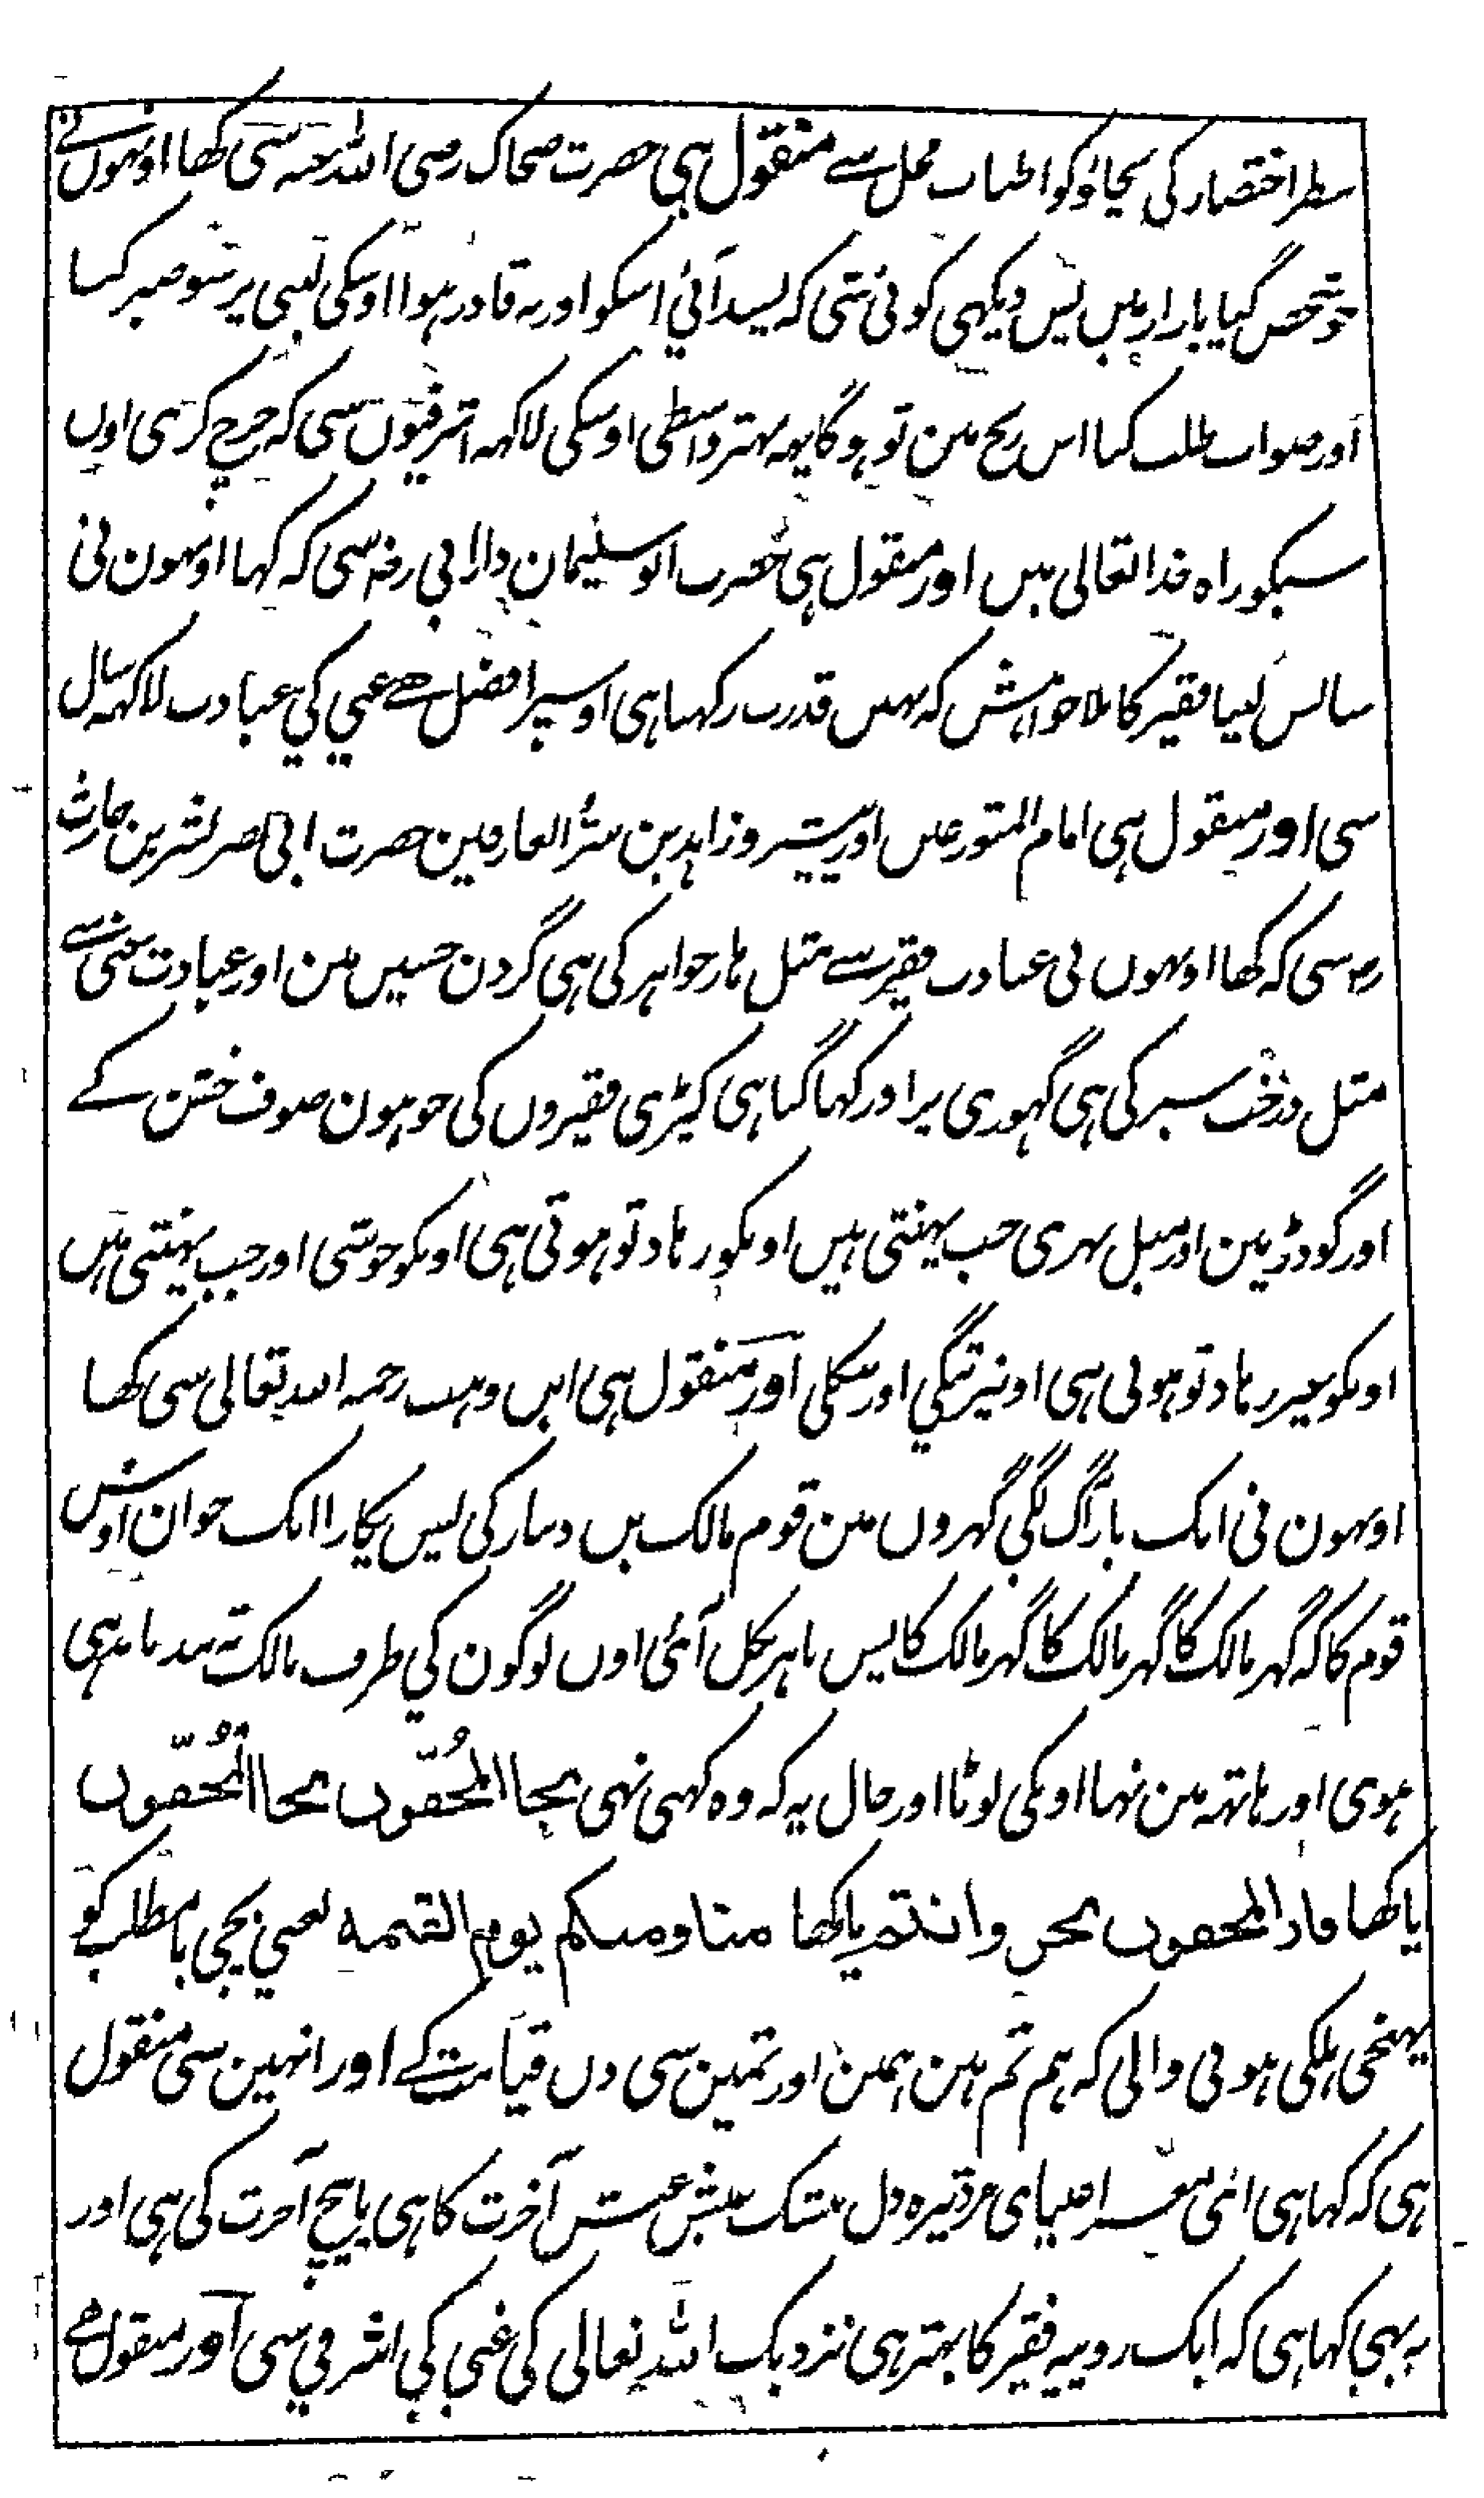 سطر اختصار کی بچاؤ کو اطناب مخل سے منقول ہی حضرت ضحاک رضی اللہ عنہ سی کھا اونھوں نے
جو شخص گیا بازار میں پس دیکہی کوئی شی کہ پسند آئی اسکو اور نہ قادر ہوا اوسکی پر سو صبر کیا
اور صواب طلب کیا اس رنج مین تو ہوگا یہہ بہتر واسطی اوسکی لاکہہ اشرفیوں سی کہ خرچ کری اون
سبکو راہ خدا تعالی میں اور منقول ہی حضرت ابو سلیمان دارانی رضہ سی کہ کہا اونہون نی
سانس لینا فقیر کا بلا خواہش کہ نہیں قدرت رکہتا ہی اوسپر افضل ہے غنی کی عبادت لاکہہ سال
سی اور منقول ہی امام المتورعین اور زاہدین العارفین حضرت ابی نصر بشر بن حارث
رہ سی کہ کھا اونہوں نی عبادت فقیر سے مثل ہار جواہر کی ہی گردن حسین مین اور عبادت غنی سے
مثل درخت سبز کی ہی گہوری پر اور کہا گیا ہی کپڑی فقیروں کی جو ہون صوف خشن کے
اور گودڑیین اور میل بہری جب پہنتی ہیں اونکو زہاد تو ہوتی ہی اونکو خوشی اور جب پہنتی ہیں
اونکو غیر زہاد تو ہوتی ہی اونپر تنگی اور مشکلی اور منقول ہی ابن وہب رحمہ اللہ تعالی سی کھا
اونہون نی ایک بار آگ لگی گہروں مین قوم مالک بن دینار کی پس پکارا ایک جوان اوس
قوم کا کہ گہر مالک کا گہر مالک کا گہر مالک کا پس باہر نکل آئی اون لوگون کی طرف مالک تہ بند باندہی
ہوی اور ہاتہہ مین تہا اونکی لوٹا اور حال یہ کہ وہ کہتی تہی نجا المُخِفّون نجا المُخِفّون
یا کھا فاز المخفون نحن وانتم یا کھا منا ومنکم یوم القیمہ یعنی بچی یا مطلب کو
پہنچی ہلکی ہونی والی کہ ہم تم ہین ہمین اور تمہین سی دن قیامت کے اور انہین سی منقول
ہی کہ کہا ہی انی اغنیای مرد تیرہ دل عیش آخرت کا ہی یا آخرت کی ہی اور
یہ بہی کہا ہی کہ ایک روپیہ فقیر کا بہتر ہی نزدیک اللہ تعالی کی غنی کی اشرفی سی اور منقول ہے